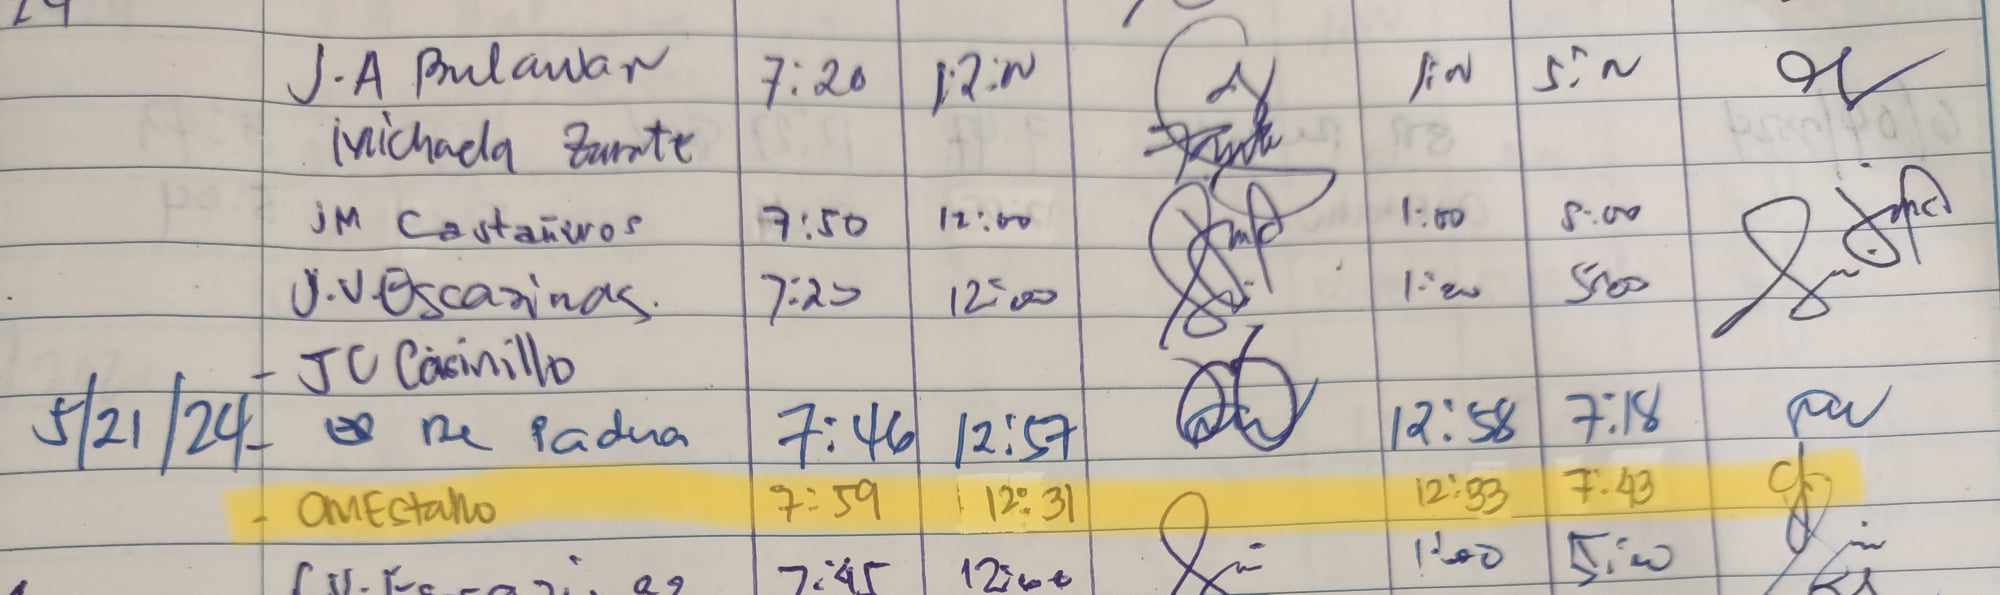 J.A Bulawan 7:20 12:N 1:N 5:N
Michaela Zurate
JM Castañeros 7:50 12:00 1:00 5:00
J.V. Escarinas. 7:20 12:00 1:00 5:00
- JC Casinillo
5/21/24 - De Padua 7:46 12:57 12:58 7:18
- OMEstallo 7:59 12:31 12:33 7:43
7:45 12:00 1:00 5:00